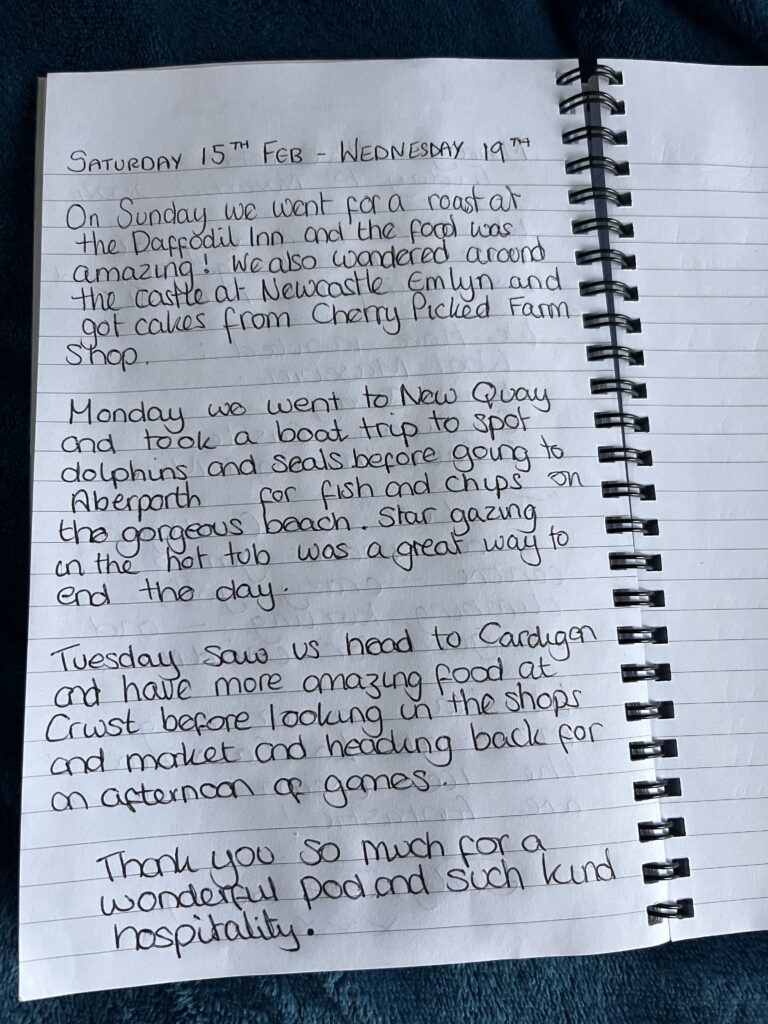 SATURDAY 15TH FEB - WEDNESDAY 19TH
On Sunday we went for a roast at
the Daffodil Inn and the food was
amazing! We also wandered around
the castle at Newcastle Emlyn and
got cakes from Cherry Picked Farm
Shop.
Monday we went to New Quay
and took a boat trip to spot
dolphins and seals before going to
Aberporth for fish and chips on
the gorgeous beach. Star gazing
in the hot tub was a great way to
end the day.
Tuesday saw us head to Cardigan
and have more amazing food at
Crwst before looking in the shops
and market and heading back for
an afternoon of games.
Thank you so much for a
wonderful pod and such kind
hospitality.